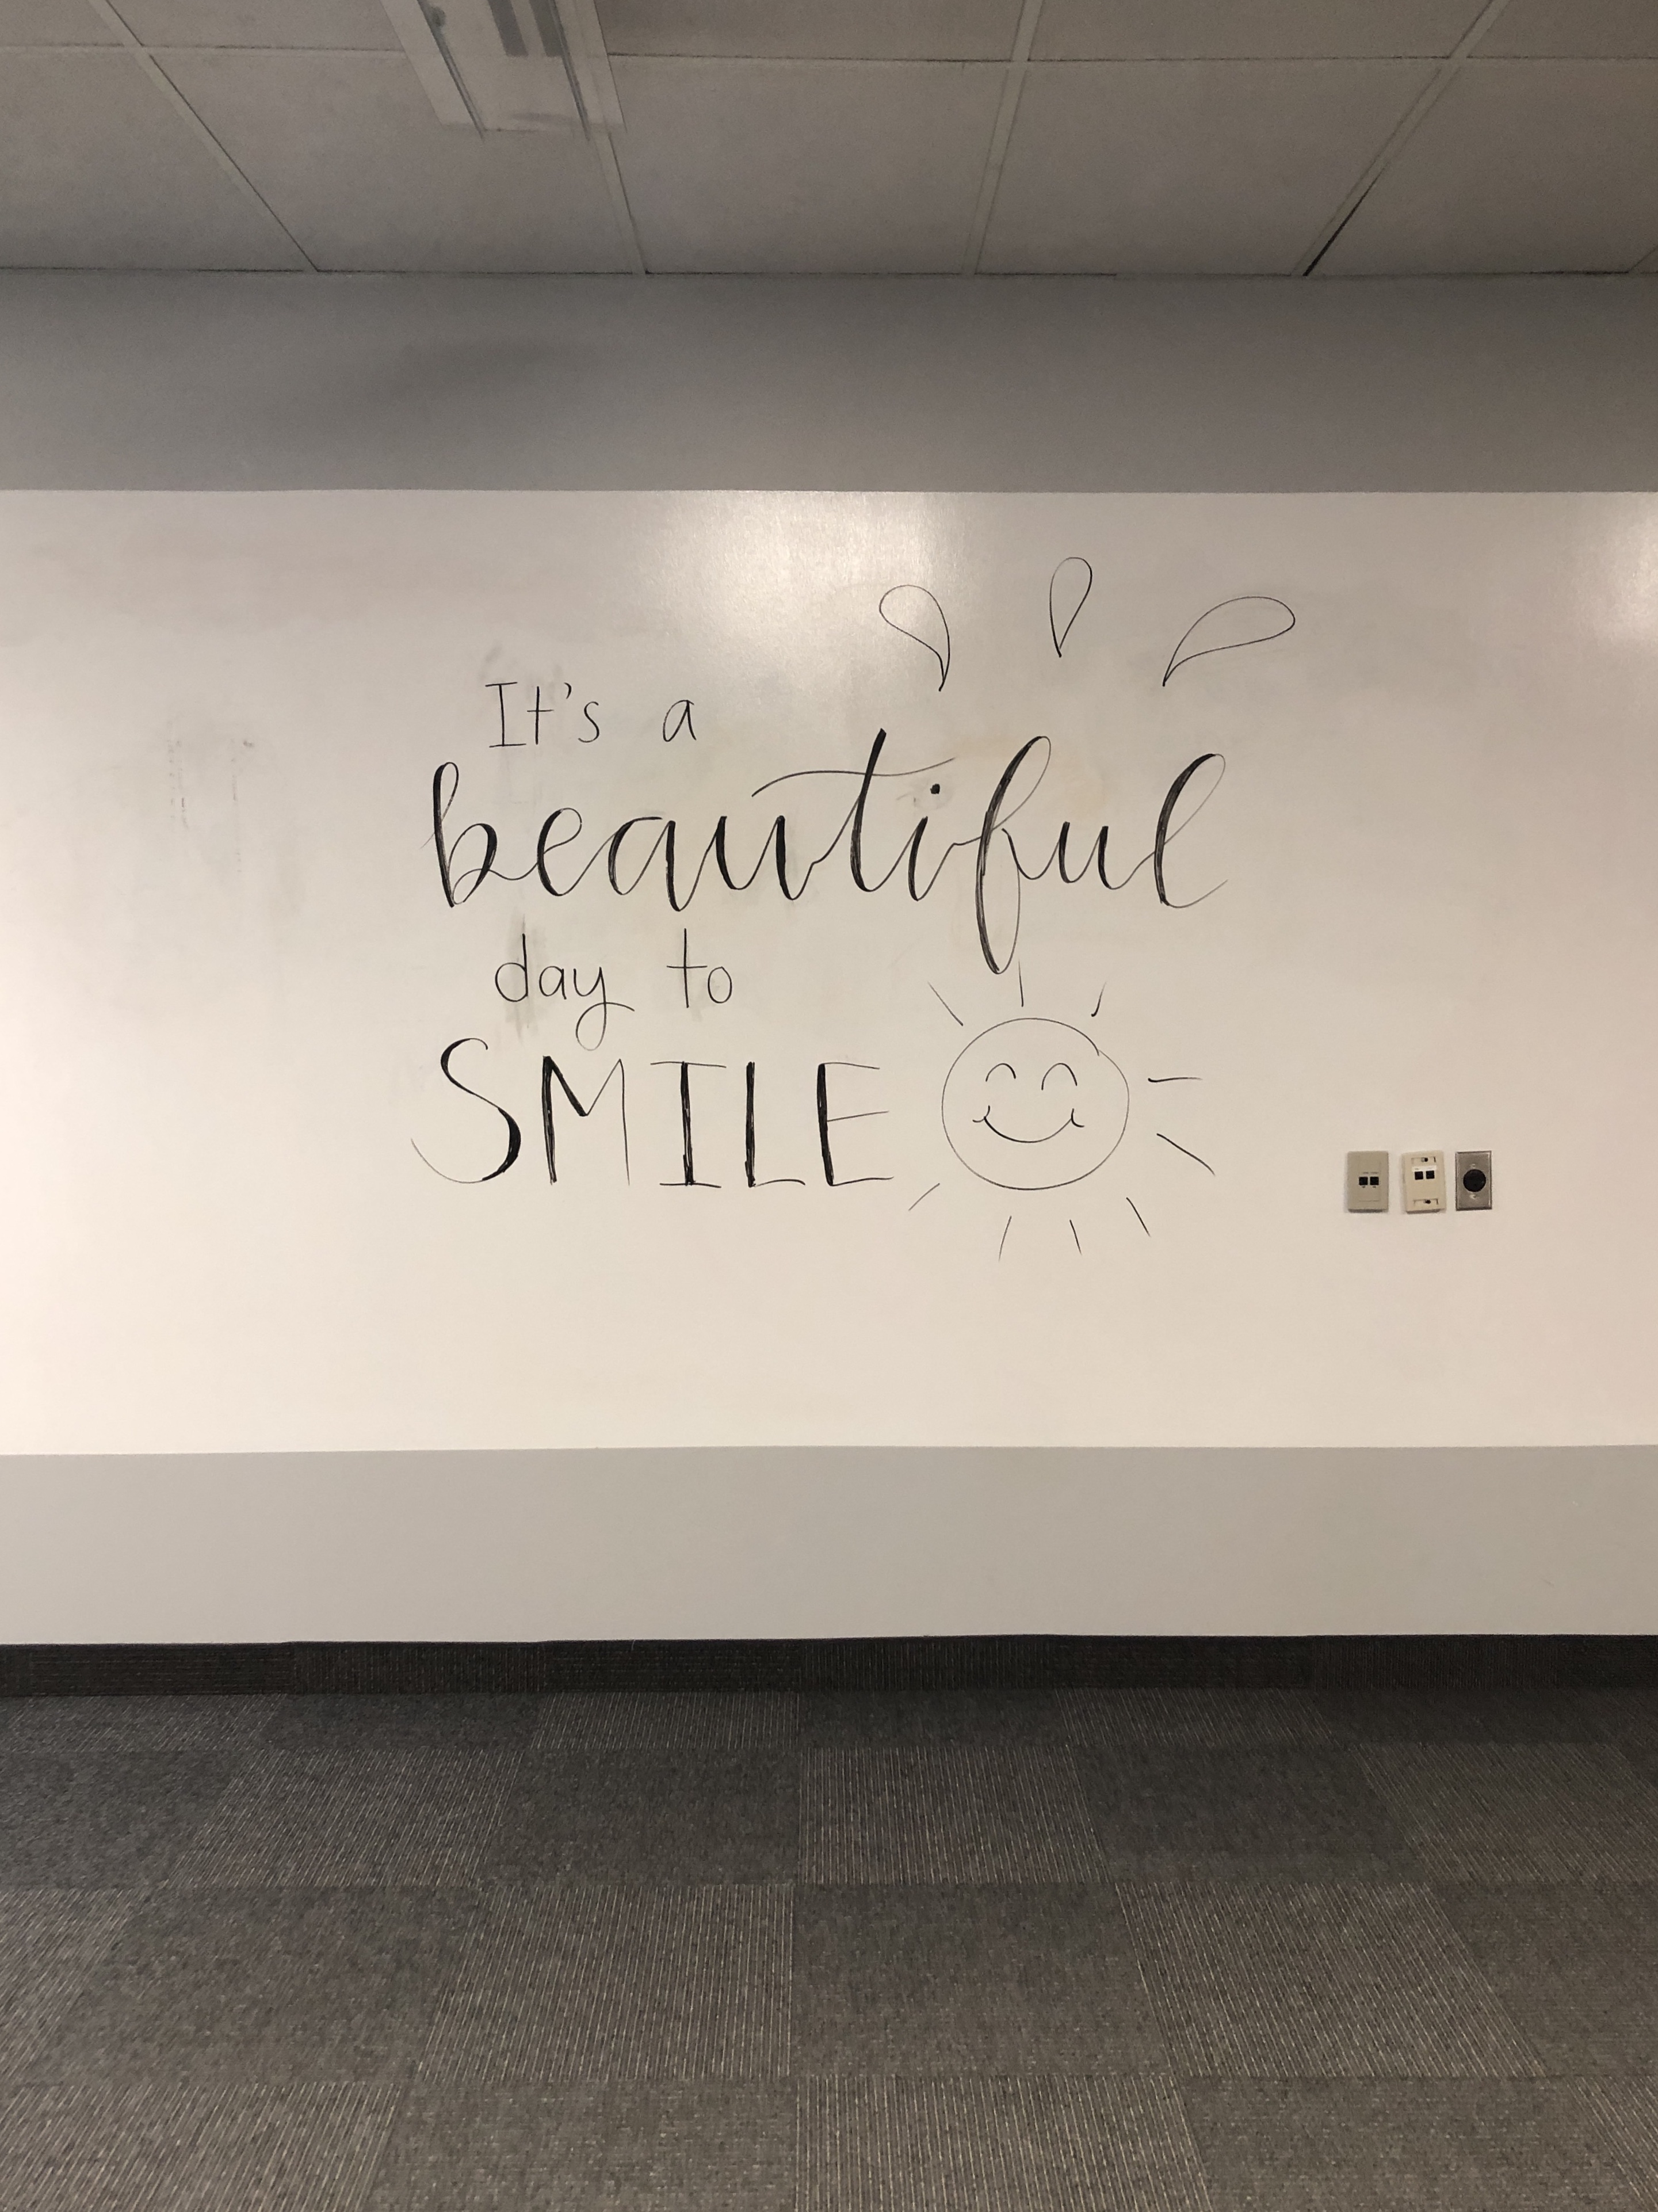 It's a
beautiful
day to
SMILE